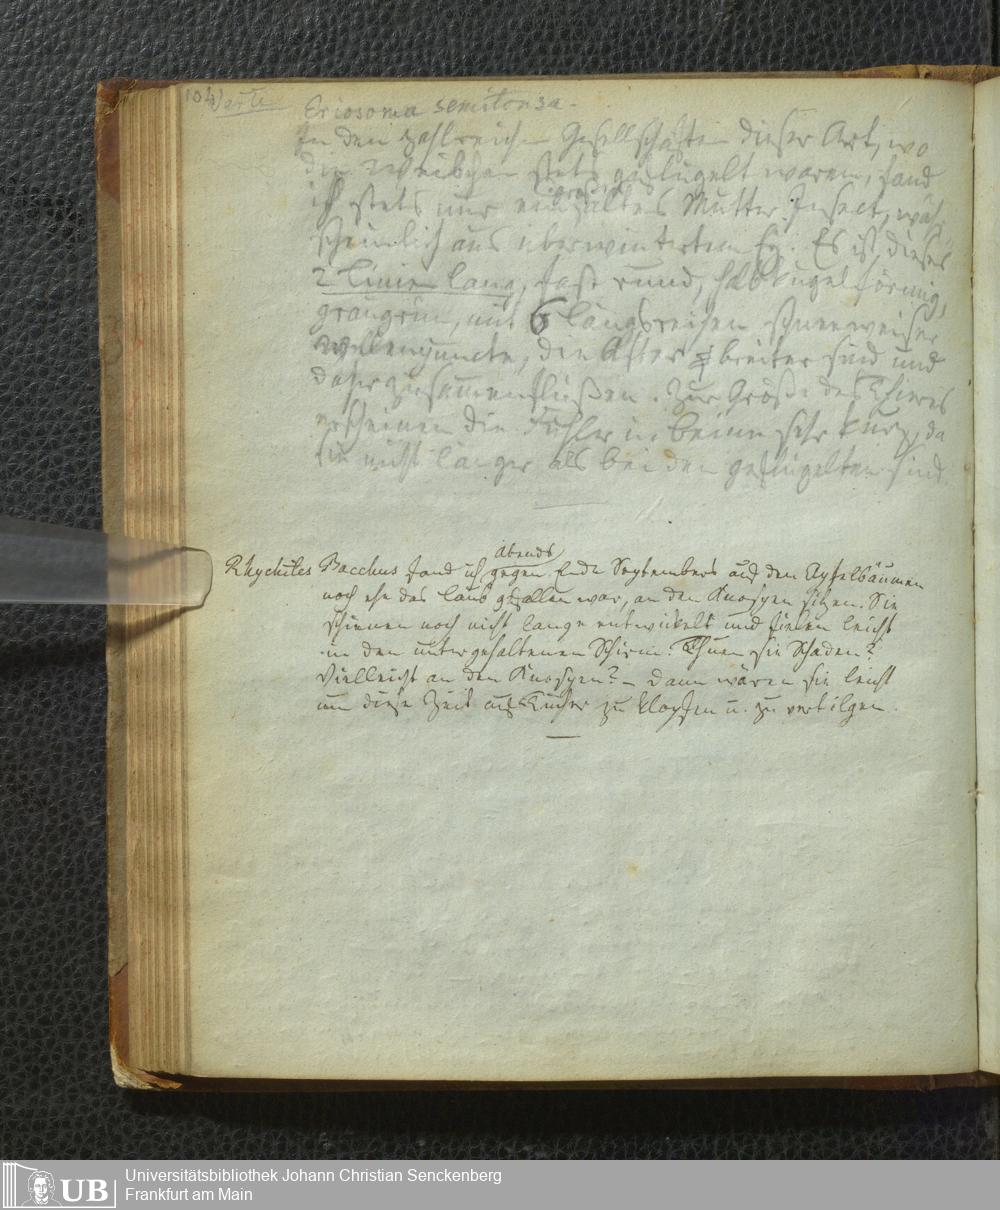 104
Eriosoma semitonsa.
In den zahlreichen Gesellschaften dieser Art, wo
die Weibchen stets geflügelt waren, fand
ich stets nur ein altes Mutter Insect, wahr
scheinlich aus überwintertem Ey. Es ist dieses
2 Linien lang, fast rund, halbkugelförmig,
graugrün, mit 6 Längsreihen schneeweißer
Wollenpuncte, die After breiter sind und
daher zusammenfließen. Zur Größe des Thieres
erscheinen die Fühler u Beine sehr kurz, da
sie nicht länger als bei den geflügelten sind.
abends
Rhychites Bacchus fand ich gegen Ende Septembers auf den Apfelbäumen
noch ehe das Laub gefallen war, an den Knospen sitzen. Sie
schienen noch nicht lange entwickelt und fielen leicht
in den untergehaltenen Schirm. Thuen sie Schaden?
Vielleicht an den Knospen? – dann wären sie leicht
um diese Zeit auf Tücher zu klopfen u. zu vertilgen.
UB Universitätsbibliothek Johann Christian Senckenberg
Frankfurt am Main